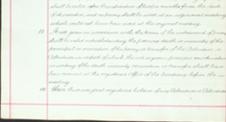 shall be valid after the expiration of twelve months from the date
of its execution, and no proxy shall be valid at an adjourned meeting
which could not have been used at the original meeting
A vote given in accordance with the terms of the instrument of proxy
shall be valid notwithstanding the previous death or insanity of the
principal or revocation of the proxy or transfer of the Debentures or
Debentures in respect of which the vote is given provided no intimation
in writing of the death insanity revocation or transfer shall have
been received at the registered office of the Company before the
meeting
registered holders of any Debentures or Debentures